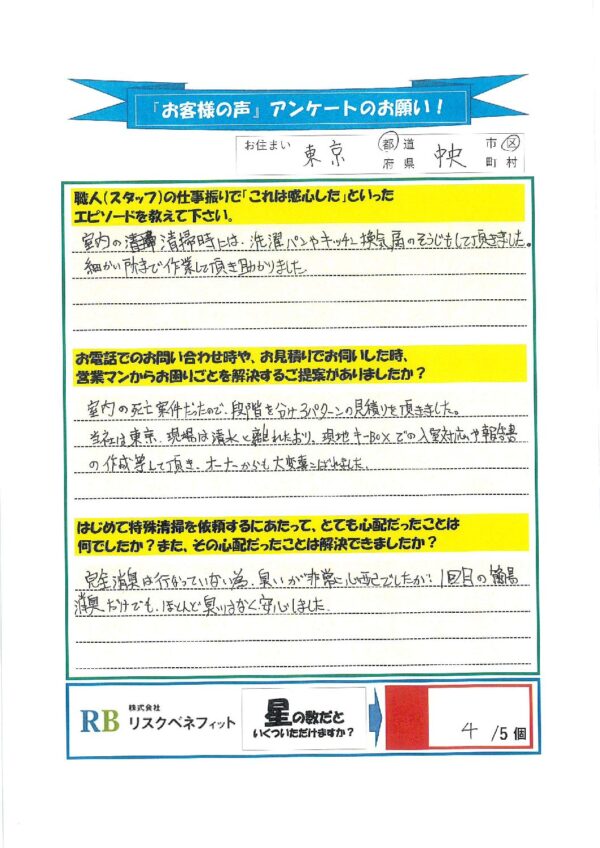 『お客様の声』アンケートのお願い！
お住まい 東京 都道府県 中央 市区町村
職人（スタッフ）の仕事振りで「これは感心した」といった
エピソードを教えて下さい。
室内の清掃時には、洗濯パンやキッチン換気扇のそうじもして頂きました。
細かい所まで作業して頂き助かりました
お電話でのお問い合わせ時や、お見積りでお伺いした時、
営業マンからお困りごとを解決するご提案がありましたか？
室内の死亡案件だったので、段階を分け3パターンの見積りを頂きました。
当社は東京、現場は清水と離れており、現地キーBOXでの入室対応や報告書
の作成等して頂き、オーナーからも大変喜こばれました、
はじめて特殊清掃を依頼するにあたって、とても心配だったことは
何でしたか？また、その心配だったことは解決できましたか？
完全消臭は行なっていない為、臭いが非常に心配でしたが、1回目の簡易
消臭だけでも、ほとんど臭いはなく安心しました
RB 株式会社
リスクベネフィット
星の数だと
いくついただけますか？
4 /5個